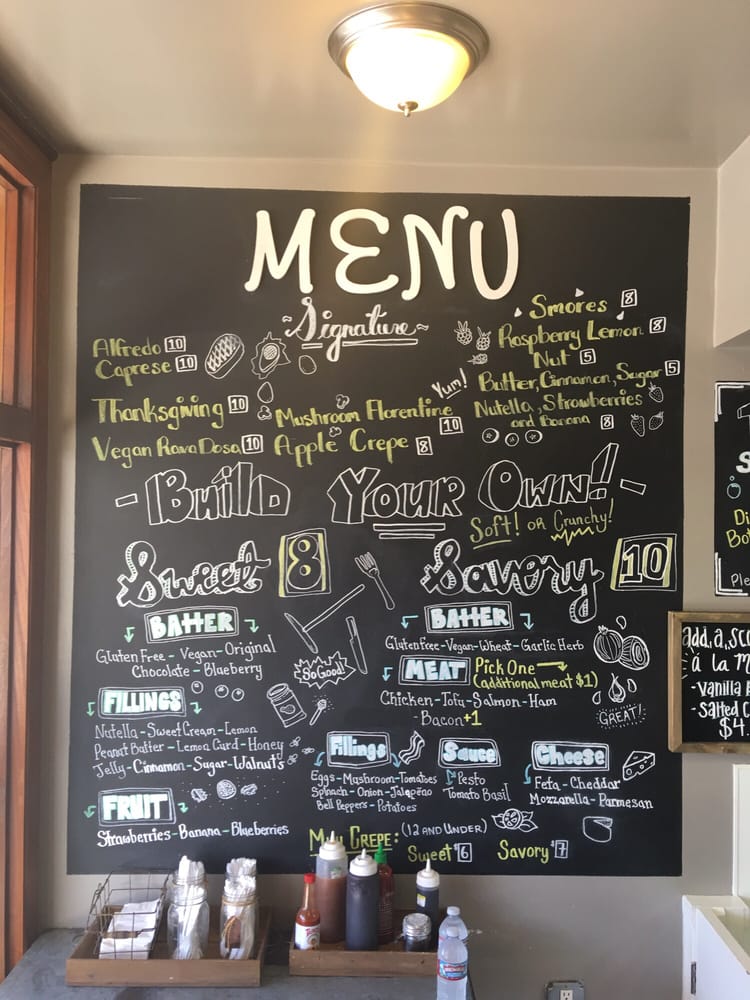 MENU
~Signature~
Alfredo 10
Caprese 10
Thanksgiving 10
Vegan Rava Dosa 10
Yum!
Mushroom Florentine 10
Apple Crepe 8
Smores 8
Raspberry Lemon 8
Nut 5
Butter, Cinnamon, Sugar 5
Nutella, Strawberries
and Banana 8
- Build Your Own! -
Soft! or Crunchy!
Sweet 8
BATTER
Gluten Free - Vegan - Original
Chocolate - Blueberry
So Good!
FILLINGS
Nutella - Sweet Cream - Lemon
Peanut Batter - Lemon Curd - Honey
Jelly - Cinnamon - Sugar - Walnut's
FRUIT
Strawberries - Banana - Blueberries
Savory 10
BATTER
Gluten Free - Vegan - Wheat - Garlic Herb
MEAT Pick One
(additional meat $1)
Chicken - Tofu - Salmon - Ham
- Bacon +1
GREAT!
Fillings
Eggs - Mushroom - Tomatoes
Spinach - Onion - Jalapeño
Bell Peppers - Potatoes
Sauce
Pesto
Tomato Basil
Cheese
Feta - Cheddar
Mozzarella - Parmesan
Mini CREPE: (12 AND UNDER)
Sweet $6 Savory $7
add a sco
à la m
- Vanilla
- Salted C
$4.
Ple